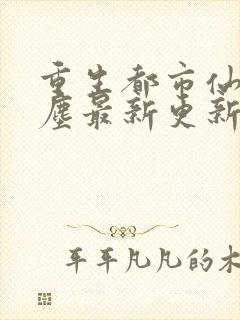 重生都市仙
尘最新更新
平平凡凡的木